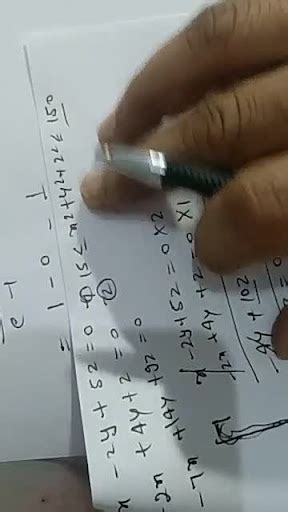 e - 1
= 1 - 0 - 1
x - 2y + 5z = 0 ① 15 ≤ x2+y2+z2 ≤ 150
-2x + 4y + z = 0 ②
-7x + 14y + 9z = 0
x - 2y + 5z = 0 x2
-2x + 4y + z = 0 x1
-4y + 10z